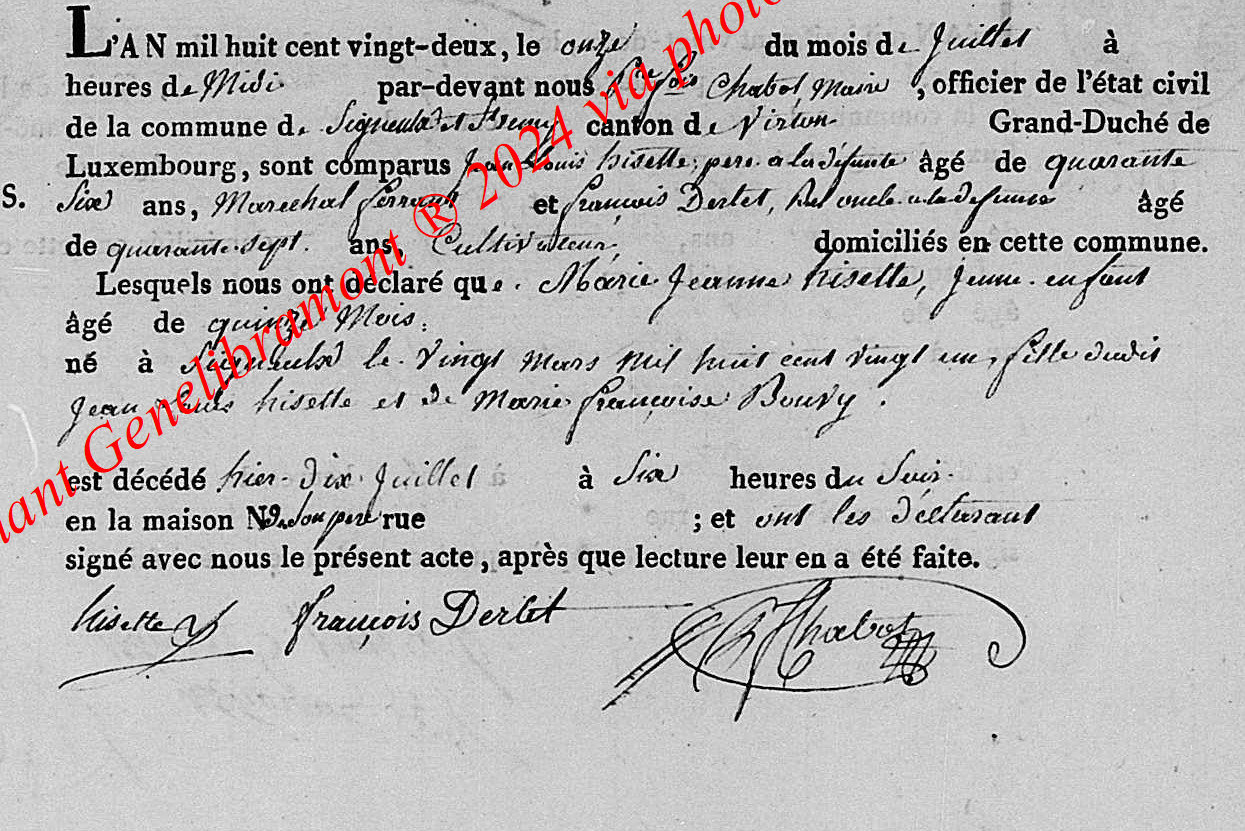 L'AN mil huit cent vingt-deux, le onze du mois de Juillet à
heures de Midi par-devant nous Chabot Maire, officier de l'état civil
de la commune de Signeulx et canton de Virton Grand-Duché de
Luxembourg, sont comparus Jean Louis hisette, pere a la défunte âgé de quarante
S. Six ans, Marechal ferrant et françois Derlet, bel oncle a la defunte âgé
de quarante-sept. ans, Cultivateur, domiciliés en cette commune.
Lesquels nous ont déclaré que Marie Jeanne hisette, Jeune enfant
âgé de quinze Mois.
né à Signeulx le Vingt Mars Mil huit cent vingt un, fille dudit
Jean Louis hisette et de Marie françoise Bouvy.
est décédé hier dix Juillet à Six heures du Soir
en la maison Nº de Son pere rue ; et ont les déclarant
signé avec nous le présent acte, après que lecture leur en a été faite.
hisette françois Derlet Chabot
nant Genelibramont ® 2024 via phot